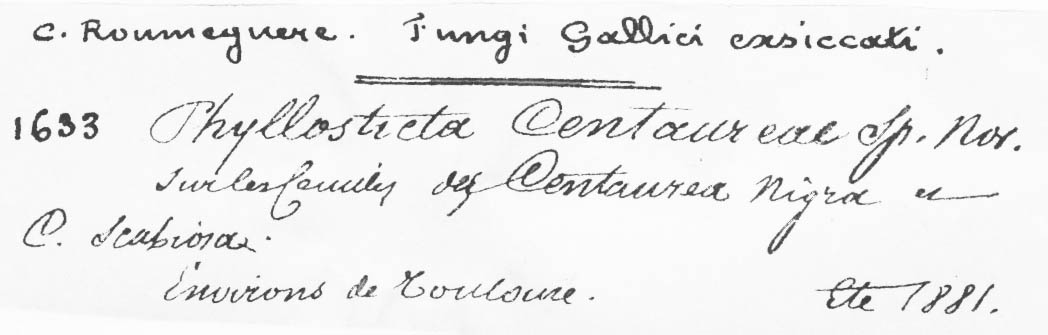 C. Roumeguere. Fungi Gallici exsiccati.
1633 Phyllosticta Centaureae Sp. Nov.
sur les feuilles des Centaurea Nigra et
C. Scabiosa.
Environs de Toulouse. Eté 1881.